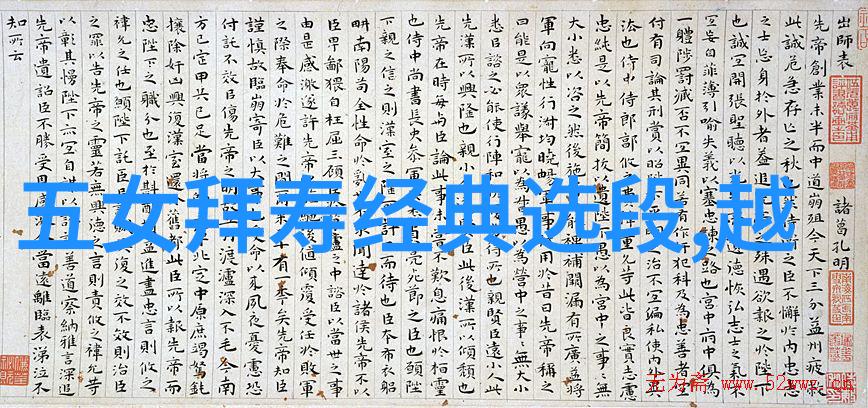 出師表 諸葛孔明
先帝創業未半而中道崩殂今天下三分益州疲敝
此誠危急存亡之秋也 侍衛之臣不懈於內忠志
之士忘身於外者蓋追 之殊遇欲報之於陛下
也誠宜開張聖聽以光 遺德恢弘志士之氣不
宜妄自菲薄引喻失義以塞忠諫之路也宮中府中俱為
一體陟罰臧否不宜異同若有作奸犯科及為忠善者宜
付有司論其刑賞以昭陛 治不宜偏私使內外異
法也侍中侍郎郭攸之費 等此皆良實志慮
忠純是以先帝簡拔以遺陛下愚以為宮中之事事無
大小悉以咨之然後施 能裨補闕漏有所廣益將
軍向寵性行淑均曉暢軍事 用於昔日先帝稱之
曰能是以眾議舉寵以為督愚以為營中之事事無大小
悉臣諮之必能使行陣和 得所也親賢臣遠小人此
先漢所以興隆也親小人 臣此後漢所以傾頹也
先帝在時每與臣論此事未嘗不歎息痛恨於桓靈
也侍中尚書長史參軍 亮死節之臣也願陛
下親之信之則漢室之隆可計 而待也臣本布衣躬
耕南陽苟全性命於亂 求聞達於諸侯先帝不以
臣卑鄙猥自枉屈三顧臣 廬之中諮臣以當世之事
由是感激遂許先帝 後值傾覆受任於敗軍
之際奉命於危難之間 有一年矣先帝知臣
謹慎故臨崩寄臣以大事 命以來夙夜憂慮恐
付託不效以傷先帝之明 渡瀘深入不毛今南
方已定甲兵已足當獎 北定中原庶竭駑鈍
攘除奸凶興復漢室還 舊都此臣所以報先帝而
忠陛下之職分也至於斟酌 益進盡忠言則攸之
禕允之任也願陛下託臣 復之效不效則治臣
之罪以告先帝之靈若無興德之言則責攸之禕允等
以彰其慢陛下亦宜自 以諮諏善道察納雅言深追
先帝遺詔臣不勝受恩感 當遠離臨表涕泣不
知所云
五女拜寿经典选段,越
无为斋 www.52wwz.cn